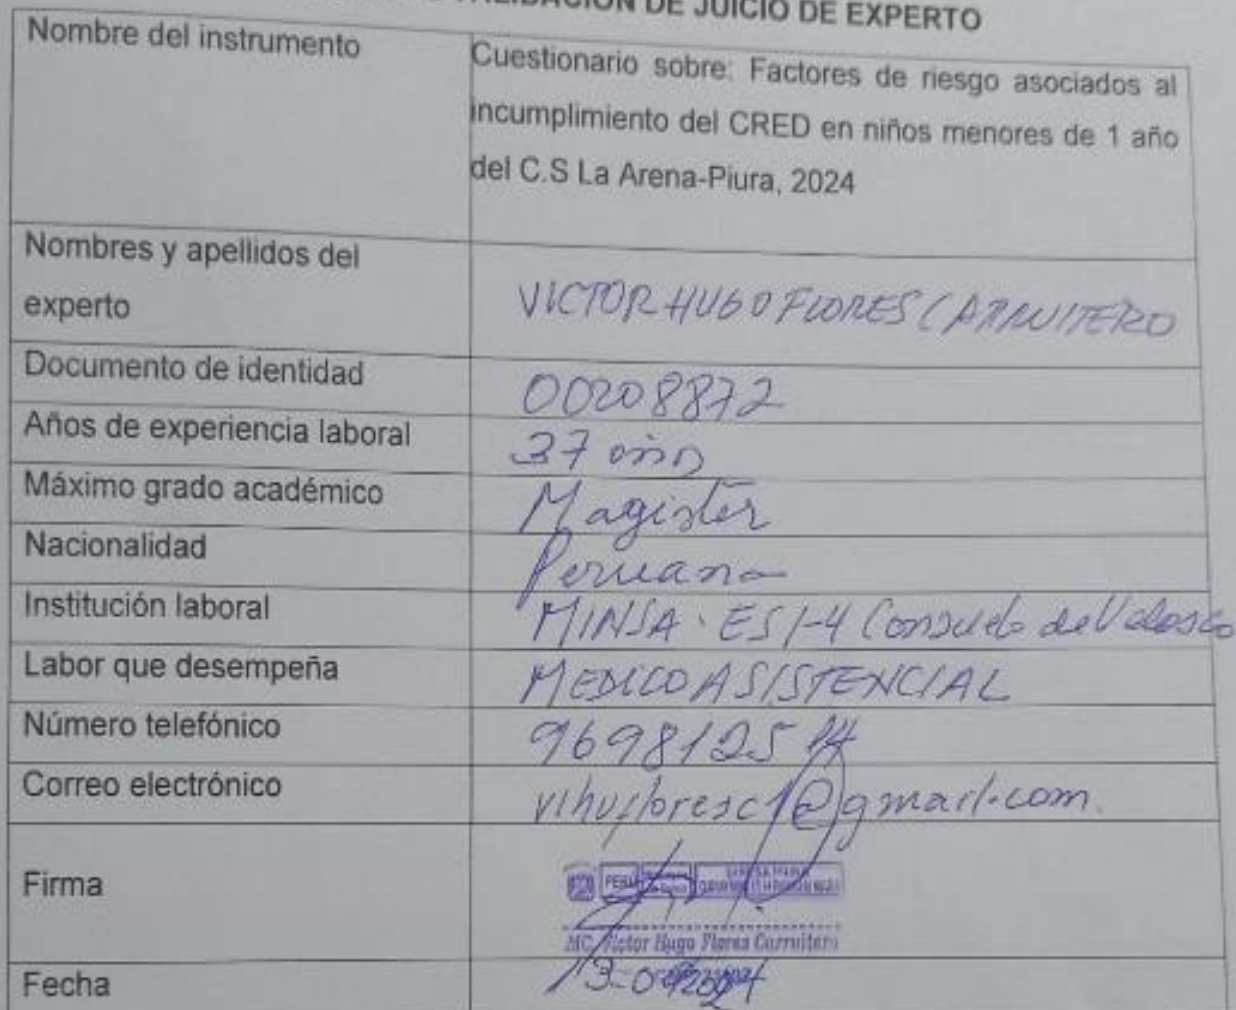 DE JUICIO DE EXPERTO
Nombre del instrumento
Cuestionario sobre: Factores de riesgo asociados al
incumplimiento del CRED en niños menores de 1 año
del C.S La Arena-Piura, 2024
Nombres y apellidos del
experto
VICTOR HUGO FLORES CARRUITERO
Documento de identidad
00208872
Años de experiencia laboral
37 años
Máximo grado académico
Magister
Nacionalidad
Peruana
Institución laboral
MINSA. ES I-4 Consuelo de Velasco
Labor que desempeña
MEDICO ASISTENCIAL
Número telefónico
969812514
Correo electrónico
vihufloresc1@gmail.com.
Firma
PERÚ
MC. Victor Hugo Flores Carruitero
Fecha